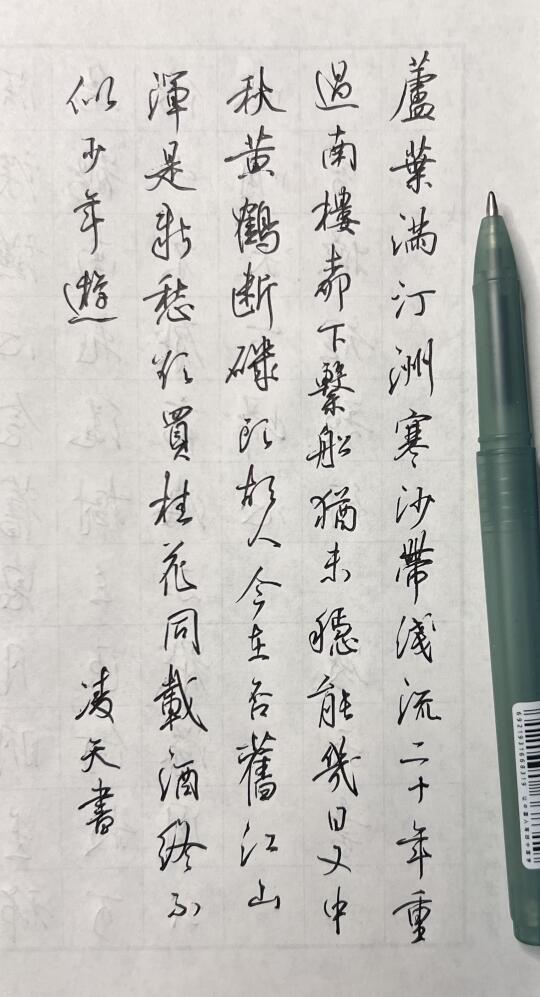 蘆葉滿汀洲寒沙帶淺流二十年重
過南樓柳下繫船猶未穩能幾日又中
秋黃鶴斷磯頭故人今在否舊江山
渾是新愁欲買桂花同載酒終不
似少年遊
凌天書